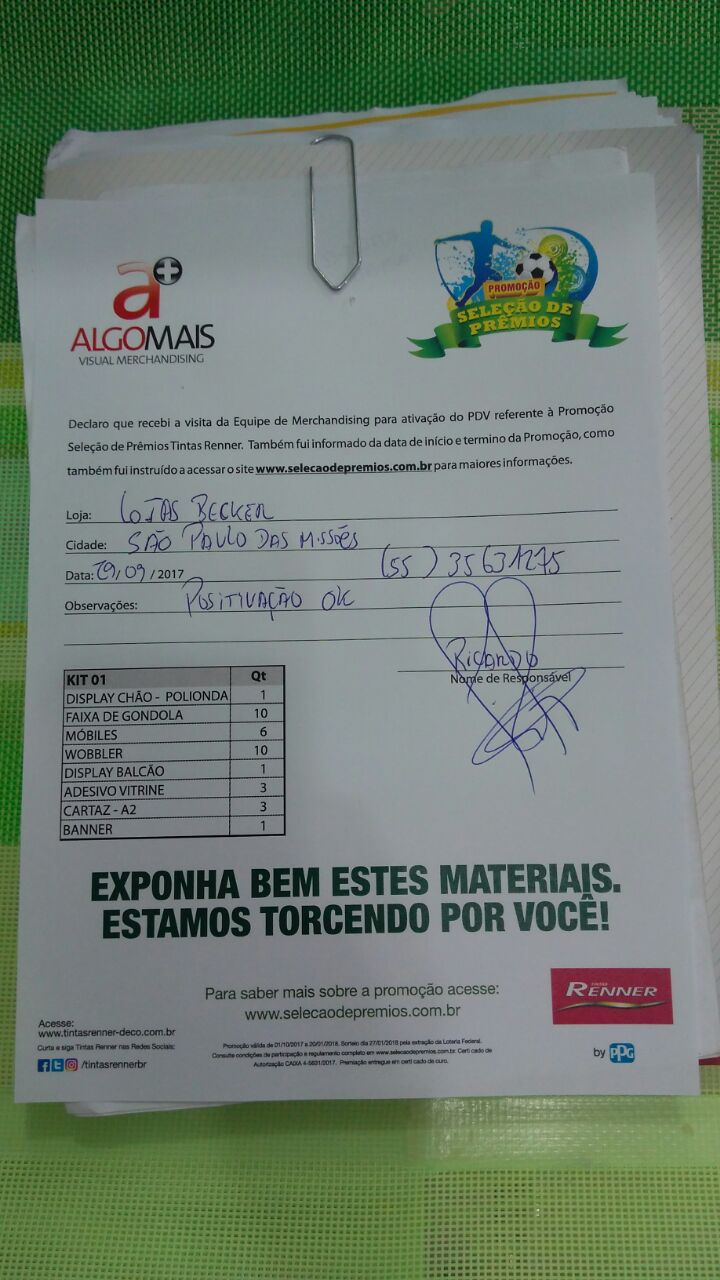 a+
ALGOMAIS
VISUAL MERCHANDISING
PROMOÇÃO
SELEÇÃO DE
PRÊMIOS
Declaro que recebi a visita da Equipe de Merchandising para ativação do PDV referente à Promoção
Seleção de Prêmios Tintas Renner. Também fui informado da data de início e termino da Promoção, como
também fui instruído a acessar o site www.selecaodepremios.com.br para maiores informações.
Loja: LOJAS BECKER
Cidade: SÃO PAULO DAS MISSÕES
Data: 29/09/2017 (55) 35631275
Observações: POSITIVAÇÃO OK
RICARDO
Nome de Responsável
KIT 01 Qt
DISPLAY CHÃO - POLIONDA 1
FAIXA DE GONDOLA 10
MÓBILES 6
WOBBLER 10
DISPLAY BALCÃO 1
ADESIVO VITRINE 3
CARTAZ - A2 3
BANNER 1
EXPONHA BEM ESTES MATERIAIS.
ESTAMOS TORCENDO POR VOCÊ!
Para saber mais sobre a promoção acesse:
www.selecaodepremios.com.br
TINTAS
RENNER
by PPG
Acesse:
www.tintasrenner-deco.com.br
Curta e siga Tintas Renner nas Redes Sociais:
/tintasrennerbr
Promoção válida de 01/10/2017 a 20/01/2018. Sorteio dia 27/01/2018 pela extração da Loteria Federal.
Consulte condições de participação e regulamento completo em www.selecaodepremios.com.br. Certi cado de
Autorização CAIXA 4-5631/2017. Premiação entregue em certi cado de ouro.